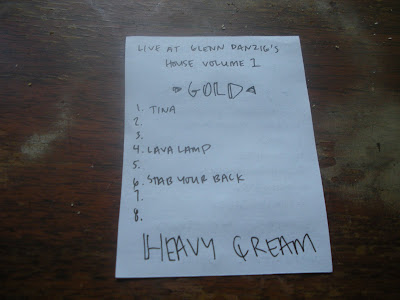 LIVE AT GLENN DANZIG'S
HOUSE VOLUME 1
GOLD
1. TINA
2.
3.
4. LAVA LAMP
5.
6. STAB YOUR BACK
7.
8.
HEAVY CREAM